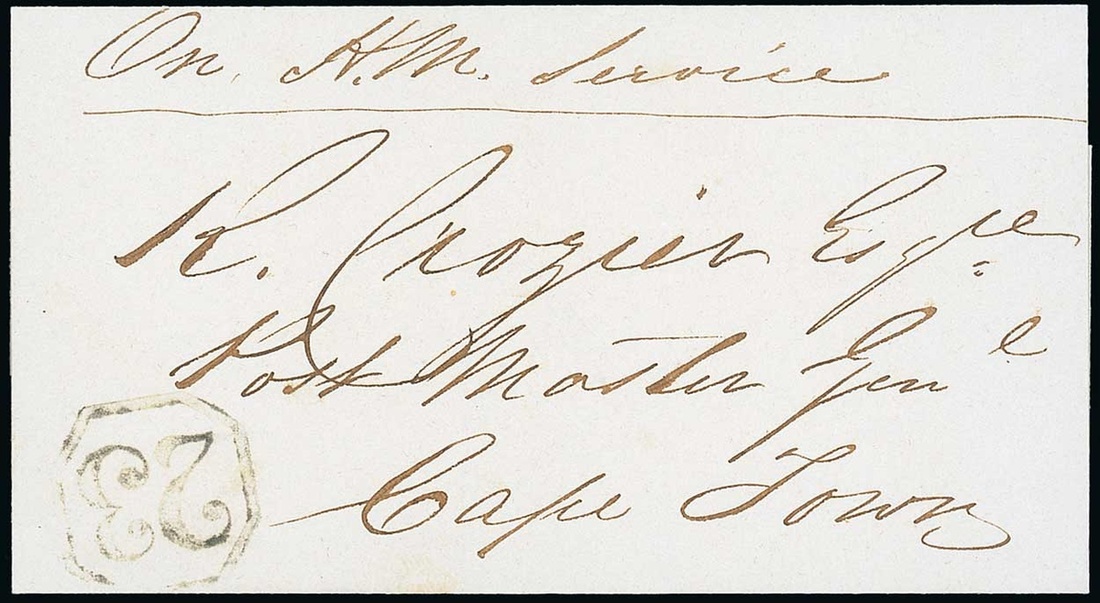 On H.M. Service
R. Crozier Esqre
Post Master Genl
Cape Town
23